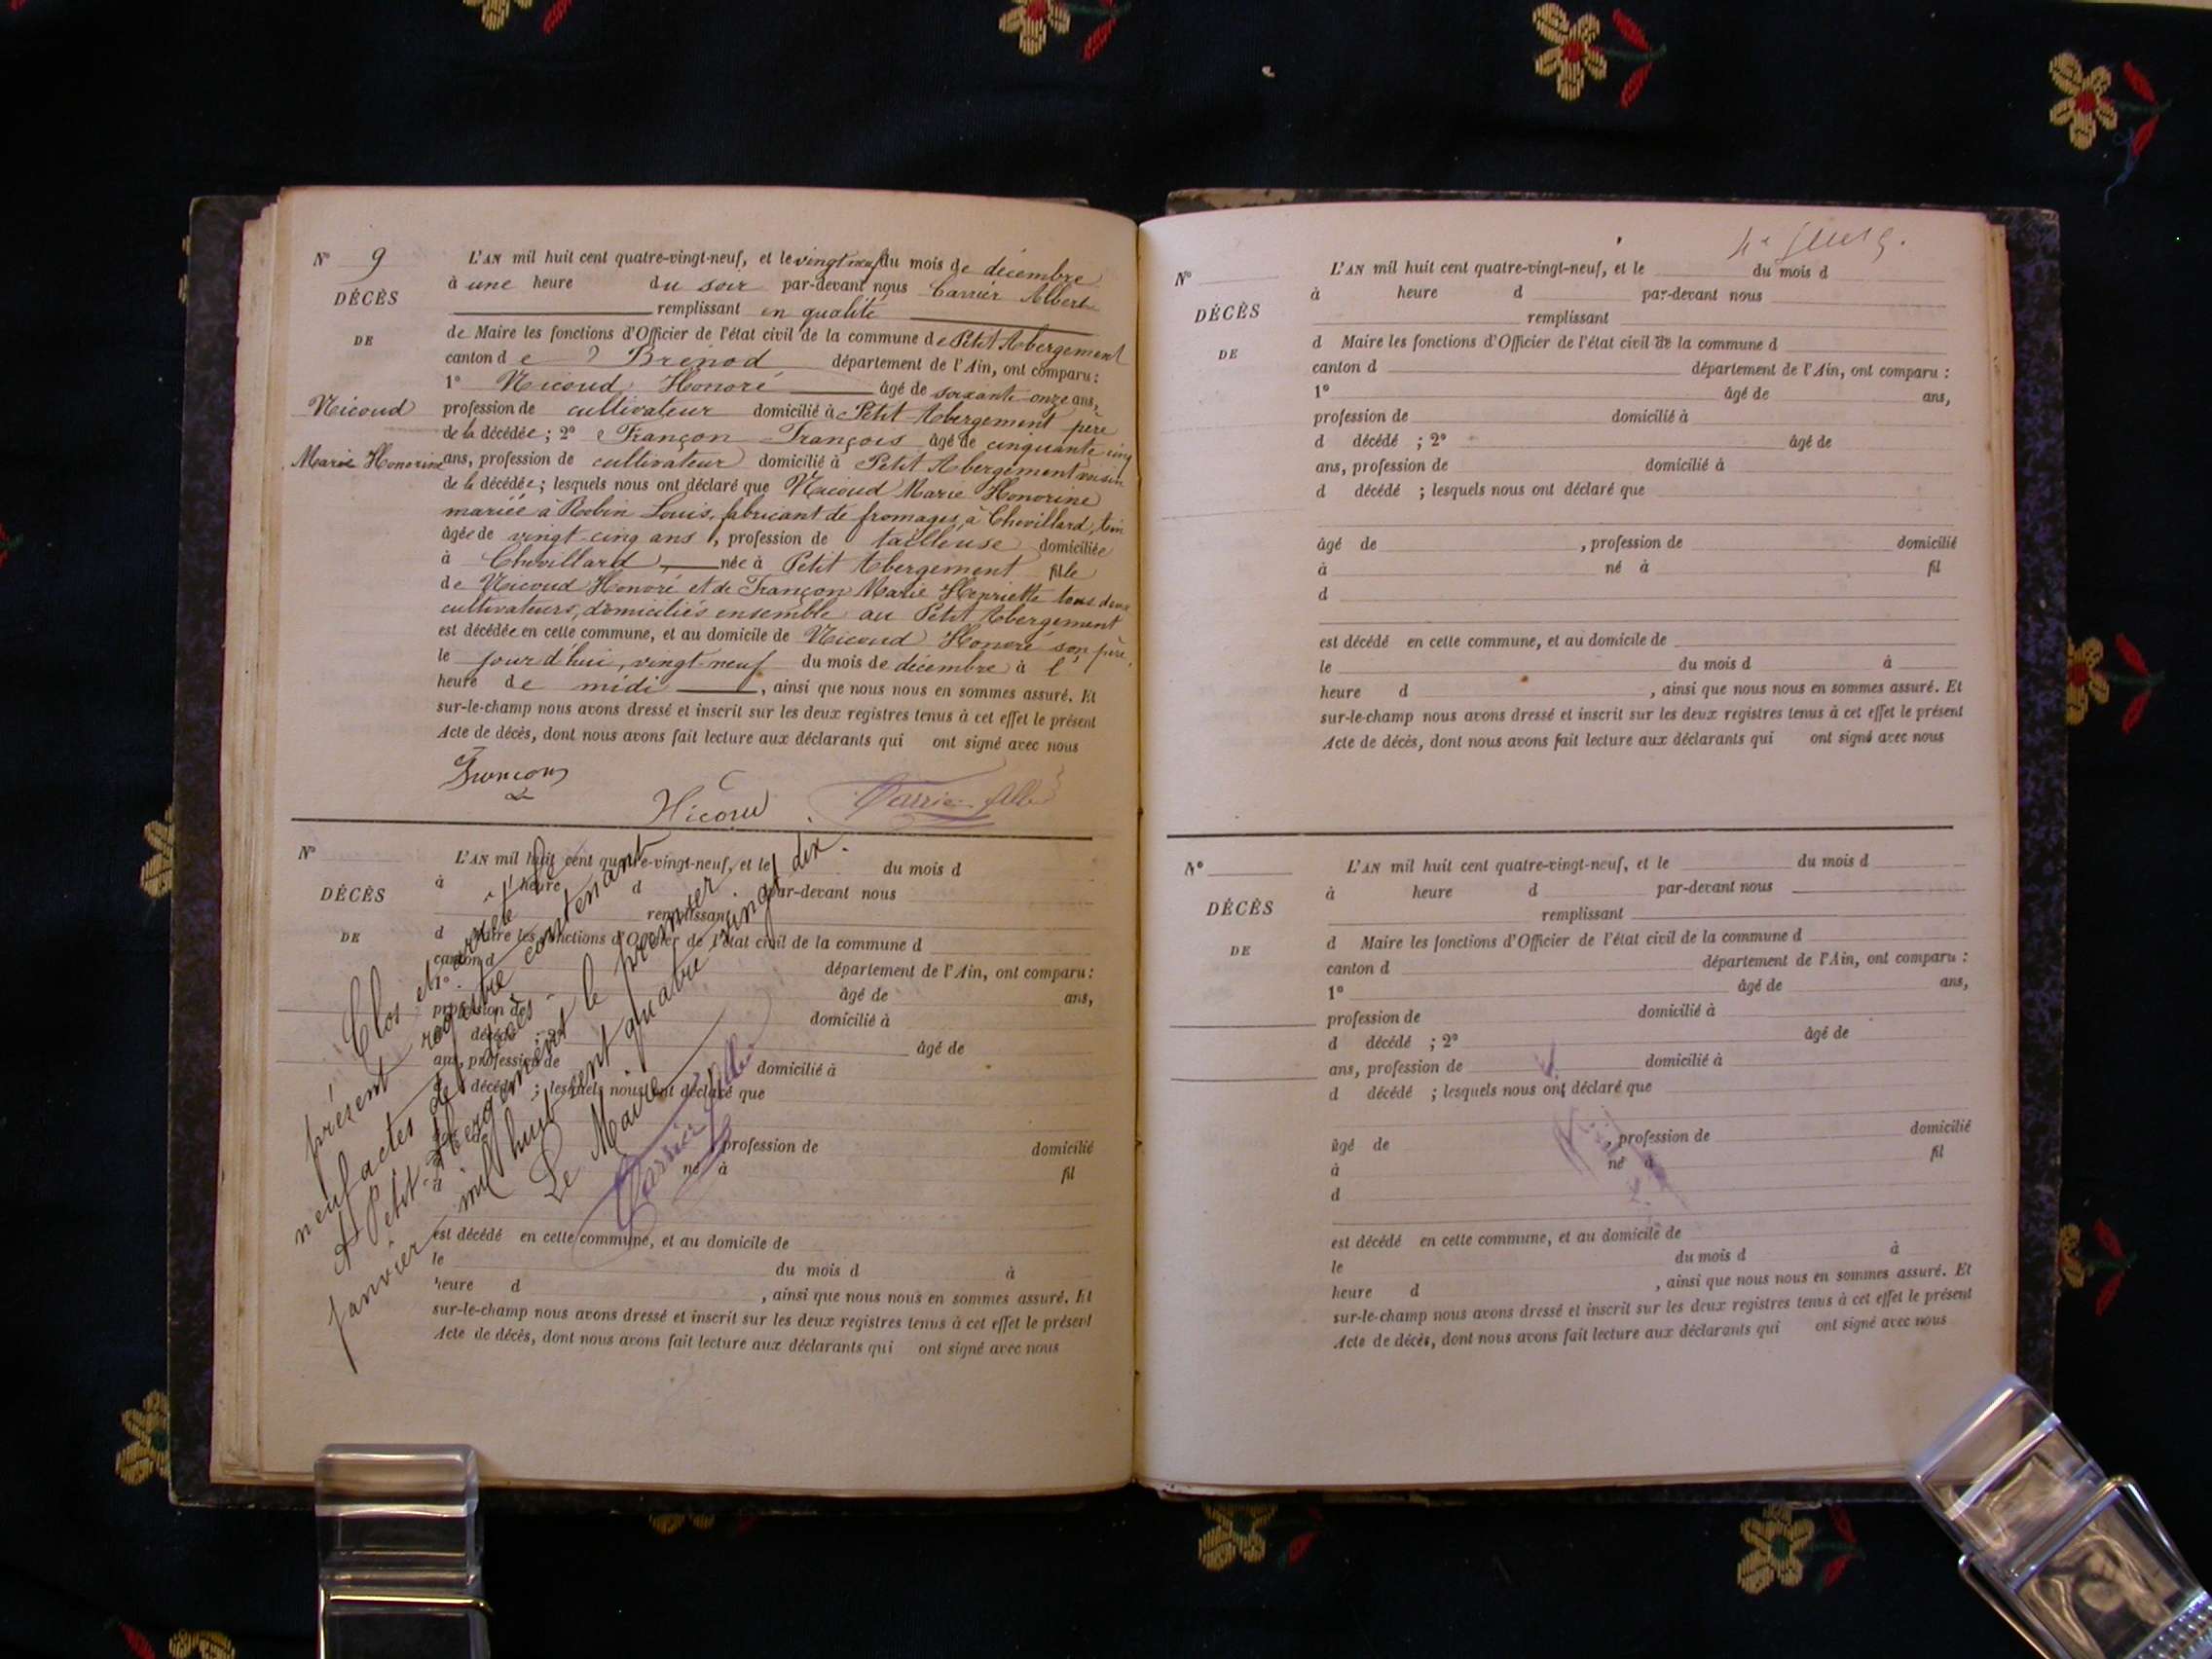 N° 9
DÉCÈS
DE
Nicoud
Marie Honorine
L'AN mil huit cent quatre-vingt-neuf, et le vingt neuf du mois de décembre
à une heure du soir par-devant nous Carrier Albert
remplissant en qualité
de Maire les fonctions d'Officier de l'état civil de la commune de Petit Abergement
canton de Brénod département de l'Ain, ont comparu :
1° Nicoud Honoré âgé de soixante onze ans,
profession de cultivateur domicilié à Petit Abergement père
de la décédée ; 2° Françon François âgé de cinquante cinq
ans, profession de cultivateur domicilié à Petit Abergement voisin
de la décédée ; lesquels nous ont déclaré que Nicoud Marie Honorine
mariée à Robin Louis, fabricant de fromages, à Chevillard,
âgée de vingt cinq ans, profession de tailleuse domiciliée
à Chevillard, née à Petit Abergement fille
de Nicoud Honoré et de Françon Marie Henriette tous deux
cultivateurs, domiciliés ensemble au Petit Abergement
est décédée en cette commune, et au domicile de Nicoud Honoré son père,
le jour d'hui, vingt-neuf du mois de décembre à l'
heure de midi, ainsi que nous nous en sommes assuré. Et
sur-le-champ nous avons dressé et inscrit sur les deux registres tenus à cet effet le présent
Acte de décès, dont nous avons fait lecture aux déclarants qui ont signé avec nous
Françon
Nicoud
Carrier Albert
N°
DÉCÈS
DE
L'AN mil huit cent quatre-vingt-neuf, et le du mois d
à heure d par-devant nous
remplissant
d Maire les fonctions d'Officier de l'état civil de la commune d
canton d département de l'Ain, ont comparu :
1° âgé de ans,
profession de domicilié à
d décédé ; 2° âgé de
ans, profession de domicilié à
d décédé ; lesquels nous ont déclaré que
âgé de , profession de domicilié
à né à fil
d
est décédé en cette commune, et au domicile de
le du mois d à
heure d , ainsi que nous nous en sommes assuré. Et
sur-le-champ nous avons dressé et inscrit sur les deux registres tenus à cet effet le présent
Acte de décès, dont nous avons fait lecture aux déclarants qui ont signé avec nous
Clos et arrêté le
présent registre contenant
neuf actes de décès
A Petit-Abergement le premier
janvier mil huit cent quatre vingt dix.
Le Maire
Carrier Albert
N°
DÉCÈS
DE
L'AN mil huit cent quatre-vingt-neuf, et le du mois d
à heure d par-devant nous
remplissant
d Maire les fonctions d'Officier de l'état civil de la commune d
canton d département de l'Ain, ont comparu :
1° âgé de ans,
profession de domicilié à
d décédé ; 2° âgé de
ans, profession de domicilié à
d décédé ; lesquels nous ont déclaré que
âgé de , profession de domicilié
à né à fil
d
est décédé en cette commune, et au domicile de
le du mois d à
heure d , ainsi que nous nous en sommes assuré. Et
sur-le-champ nous avons dressé et inscrit sur les deux registres tenus à cet effet le présent
Acte de décès, dont nous avons fait lecture aux déclarants qui ont signé avec nous
N°
DÉCÈS
DE
L'AN mil huit cent quatre-vingt-neuf, et le du mois d
à heure d par-devant nous
remplissant
d Maire les fonctions d'Officier de l'état civil de la commune d
canton d département de l'Ain, ont comparu :
1° âgé de ans,
profession de domicilié à
d décédé ; 2° âgé de
ans, profession de domicilié à
d décédé ; lesquels nous ont déclaré que
âgé de , profession de domicilié
à né à fil
d
est décédé en cette commune, et au domicile de
le du mois d à
heure d , ainsi que nous nous en sommes assuré. Et
sur-le-champ nous avons dressé et inscrit sur les deux registres tenus à cet effet le présent
Acte de décès, dont nous avons fait lecture aux déclarants qui ont signé avec nous